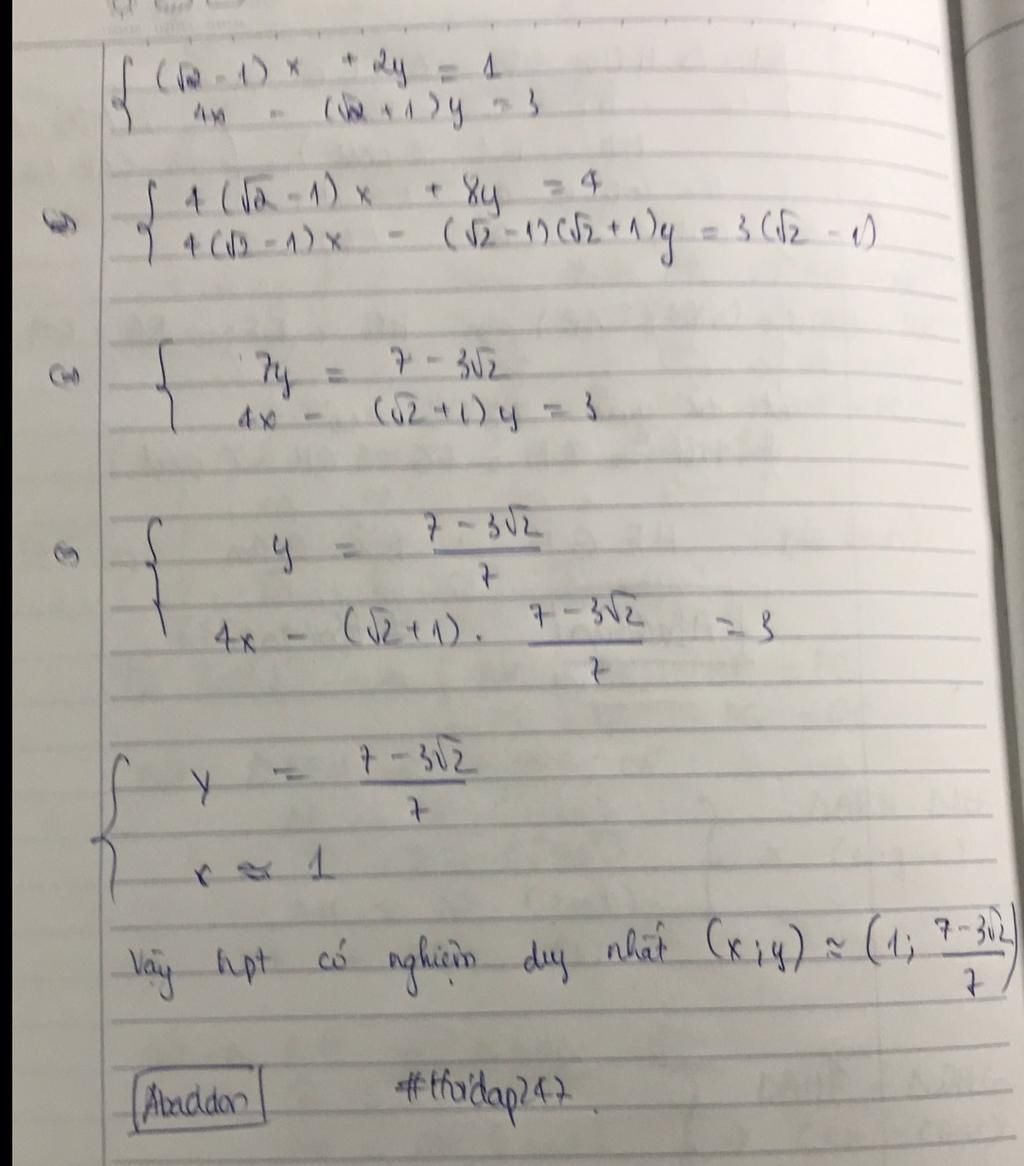 { (√2 - 1) x + 2y = 1
4x - (√2 + 1) y = 3
⇔ { 4 (√2 - 1) x + 8y = 4
4 (√2 - 1) x - (√2 - 1) (√2 + 1) y = 3 (√2 - 1)
⇔ { 7y = 7 - 3√2
4x - (√2 + 1) y = 3
⇔ { y = (7 - 3√2)/7
4x - (√2 + 1) . (7 - 3√2)/7 = 3
{ y = (7 - 3√2)/7
x ≈ 1
Vậy hpt có nghiệm duy nhất (x ; y) ≈ (1 ; (7 - 3√2)/7)
Abaddon #Hoidap247.